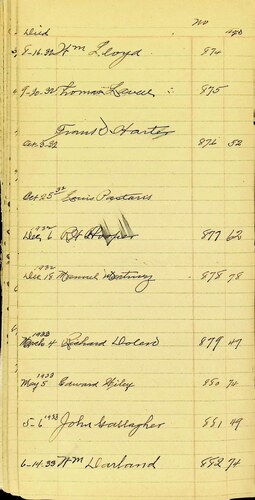 Died no age
8-16.32 Wm Lloyd 874
9-20-32 Thomas 875
Frank Harter
Oct. 3-32 876 52
Oct 25 32 Louis Pantaris
1932
Dec, 6 R H Hooper 877 62
1932
Dec 18 Manuel Martinez 878 78
1933
March 4 Richard 879 47
1933
May 5 Edward Giley 880 74
5-6 1933 John Gallagher 881 49
6-14.33 Wm Darland 882 74